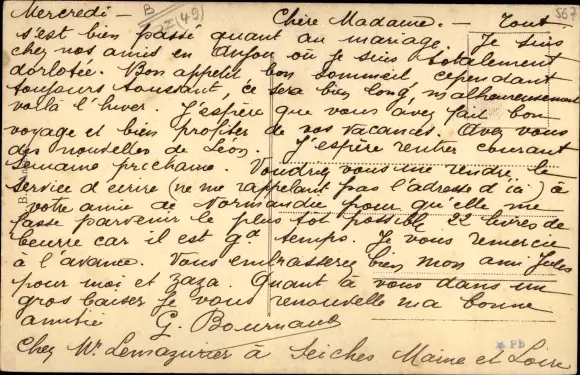 Mercredi - B (49) Chère Madame. - Tout 567
s'est bien passé quant au mariage. Je suis
chez nos amis en Anjou où je suis totalement
dorlotée. Bon appetit, bon sommeil, cependant
toujours toussant, ce sera bien long, malheureusement
voilà l'hiver. J'espère que vous avez fait bon
voyage et bien profiter de vos vacances. Avez vous
des nouvelles de Léon. J'espère rentrer courant
semaine prochaine. Voudriez vous me rendre le
service d'écrire (ne me rappelant pas l'adresse d'ici) à
votre amie de Normandie pour qu'elle me
fasse parvenir le plus tot possible 22 livres de
beurre car il est gd temps. Je vous remercie
à l'avance. Vous embrasserez bien mon ami Jules
pour moi et Zaza. Quant à vous dans un
gros baiser je vous renouvelle ma bonne
amitié G.
Chez Mr Lemazurier à Seiches Maine et Loire
PB